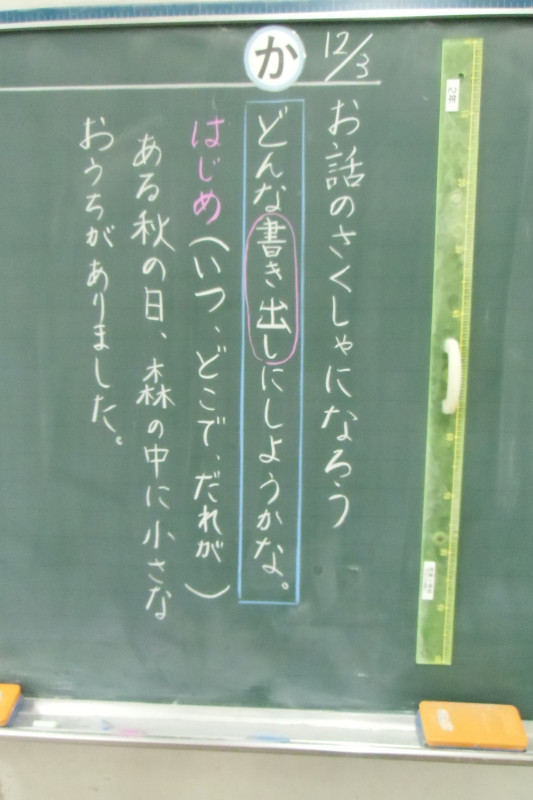 12/3
お話のさくしゃになろう
か
どんな書き出しにしようかな。
はじめ(いつ、どこで、だれが)
ある秋の日、森の中に小さな
おうちがありました。